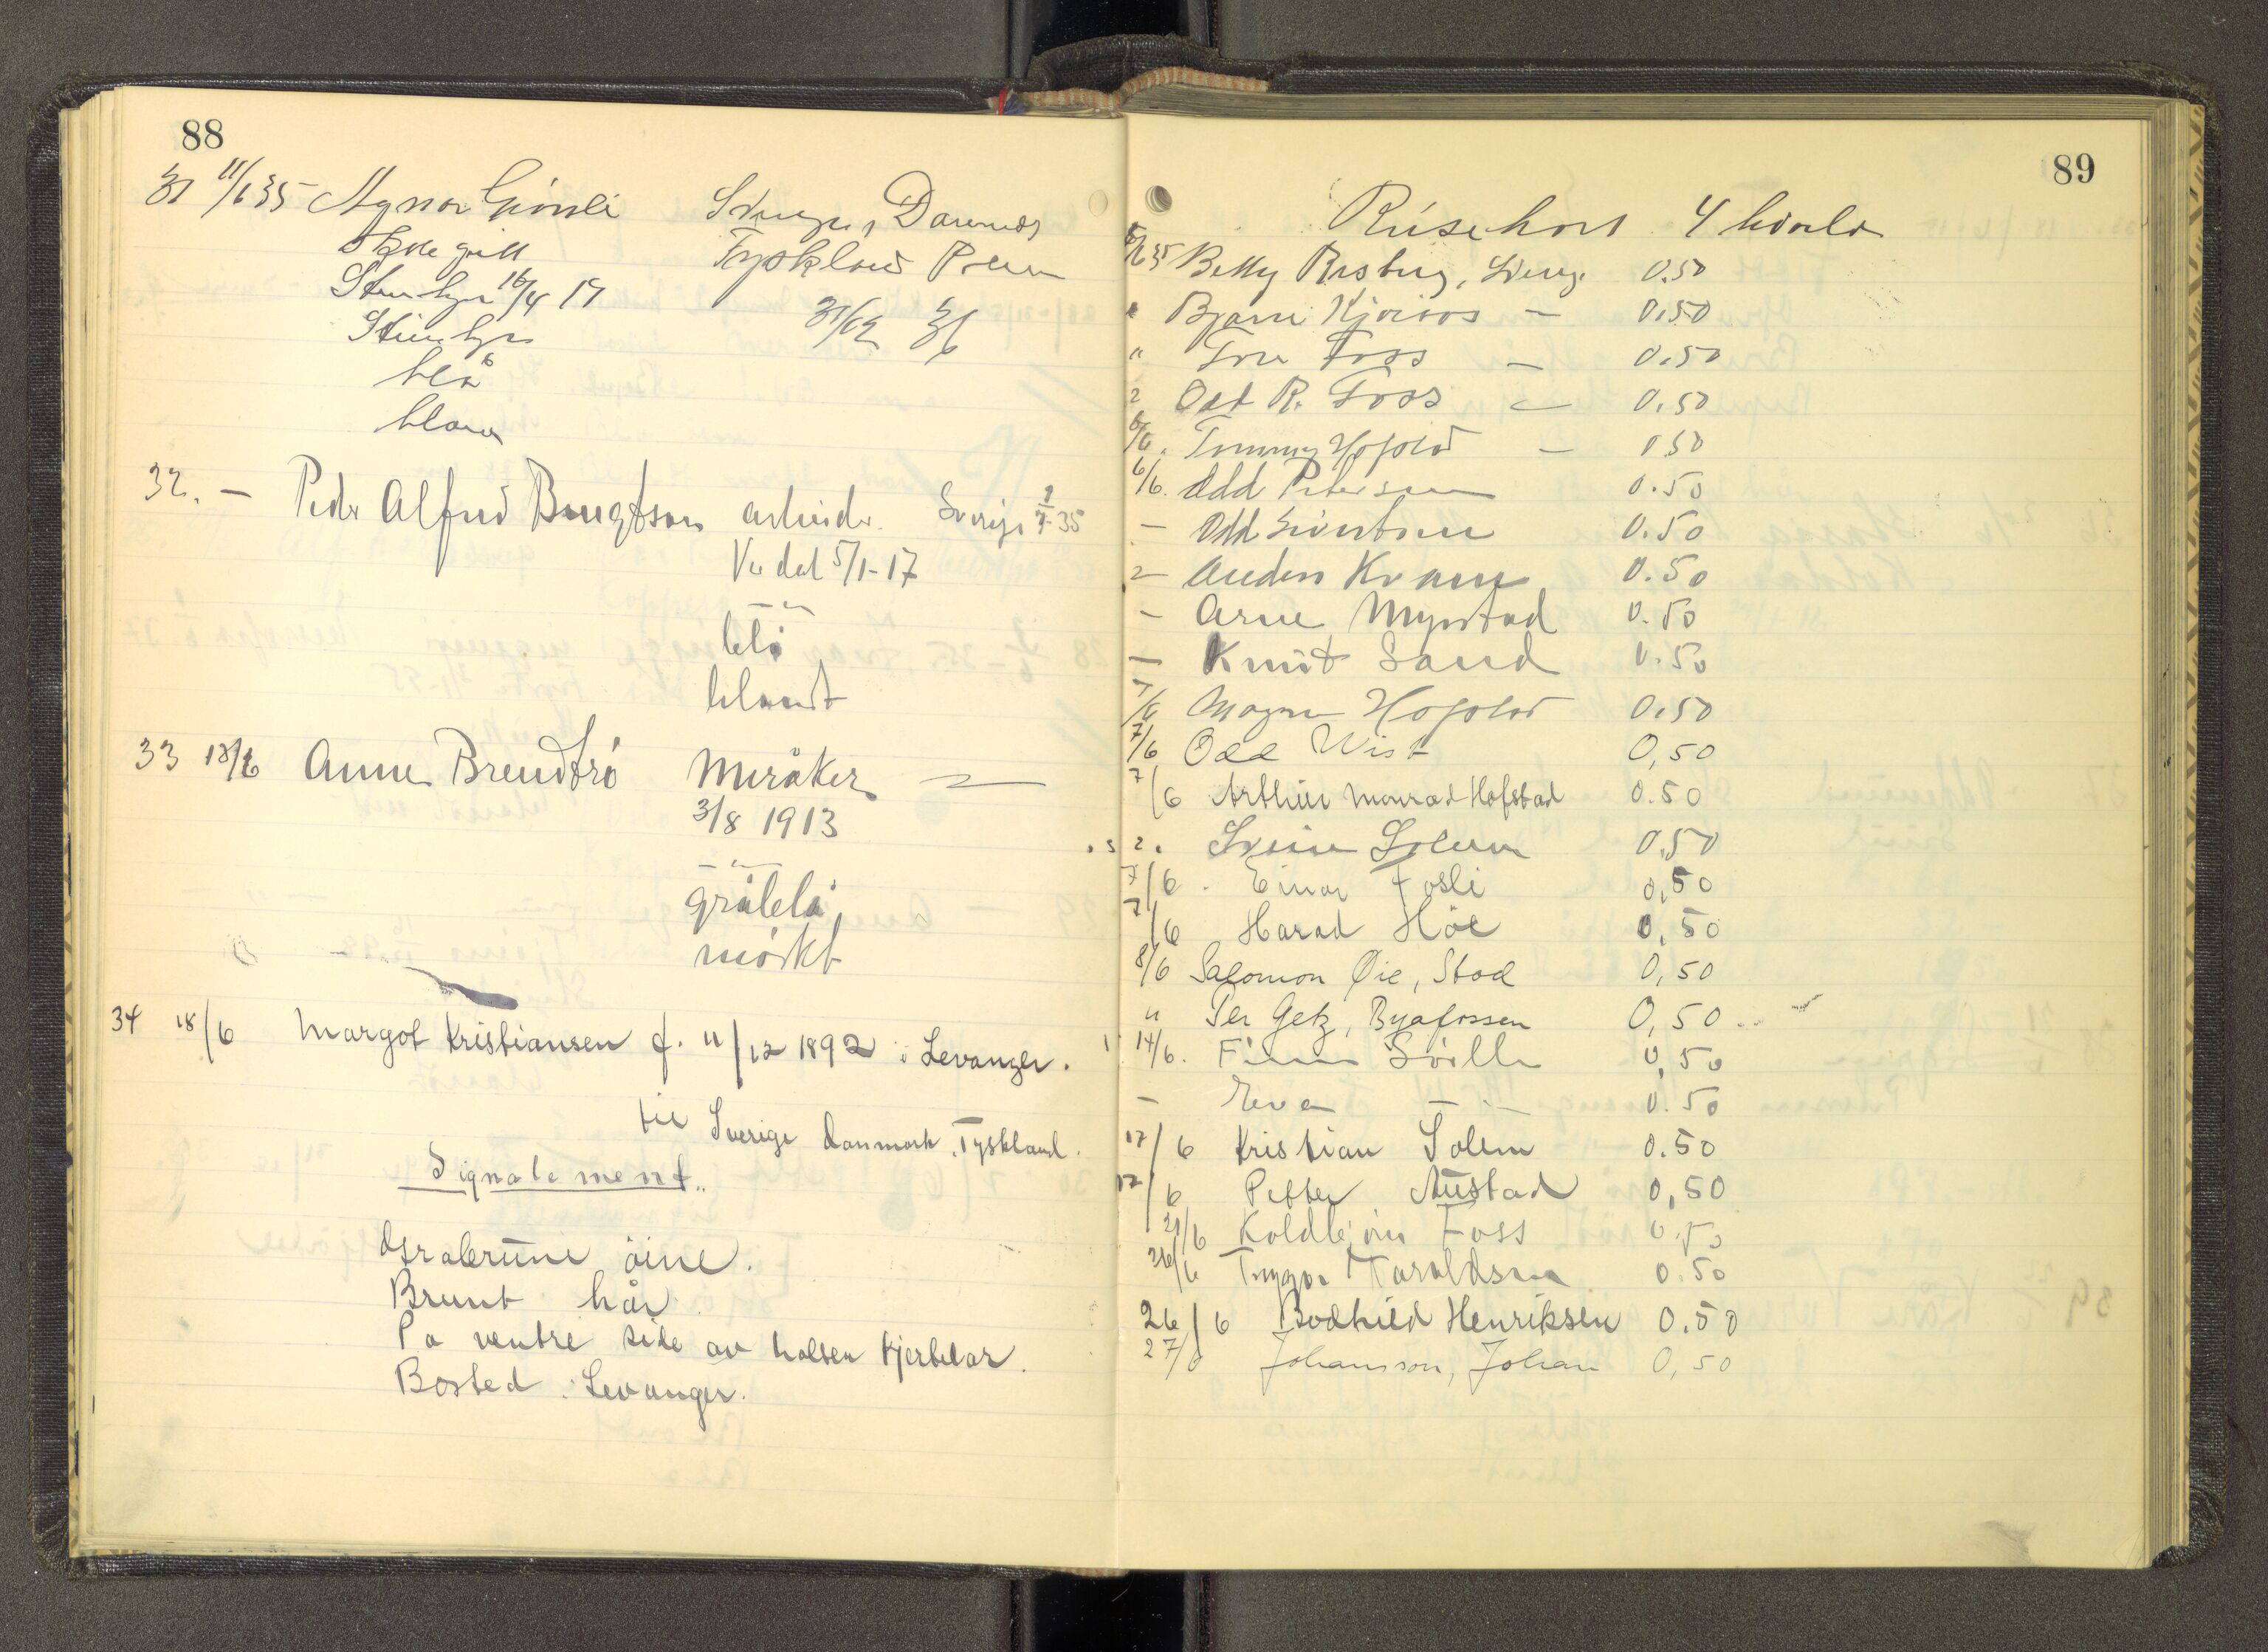 88
31 11/6 35 Agnar Givsli Sverige, Danmark
Tyskland
16/4 17
31/12 36
blå
blond
32. — Peder Alfred Bengtson arbeider. Sverige 35
Verdal 5/1-17
— " —
blå
blondt
33 18/6 Anne Brendtrö Meråker —
3/8 1913
— " —
gråblå
mörkt
34 18/6 Margot Kristiansen f. 11/12 1892 i Levanger.
til Sverige Danmark, Tyskland.
Signalement..
Gråbrune öine.
Brunt hår.
På ventre side av halsen kjertelar.
Bosted: Levanger.
89
Reisekort 4
35 Betty Sverige 0.50
" Bjarne — 0.50
" Foss — 0.50
Odd R. Foss — 0.50
6/6. Tommy Hofstad — 0.50
6/6. Odd Petersen 0.50
— Odd Sivertsen 0.50
— Anders Kvam 0.50
— Arne Mynstad 0.50
— Knut Sand 0.50
7/6 Magne Hofstad 0.50
7/6 Odd Wist 0,50
7/6 Arthur Monrad Hofstad 0.50
Svein Solum 0.50
7/6. Einar Fosli 0,50
7/6 Harad Höe 0,50
8/6 Salomon Øie, Stod 0,50
" Per Getz, Byafossen 0,50
14/6. Finn 0,50
— — " — 0.50
17/6 Kristian Solem 0.50
17/6 Petter Austad 0,50
21/6 Koldbjörn Foss 0.50
26/6 Trygve Haraldsen 0.50
26/6 Bodhild Henriksen 0.50
27/6 Johansson, Johan 0,50